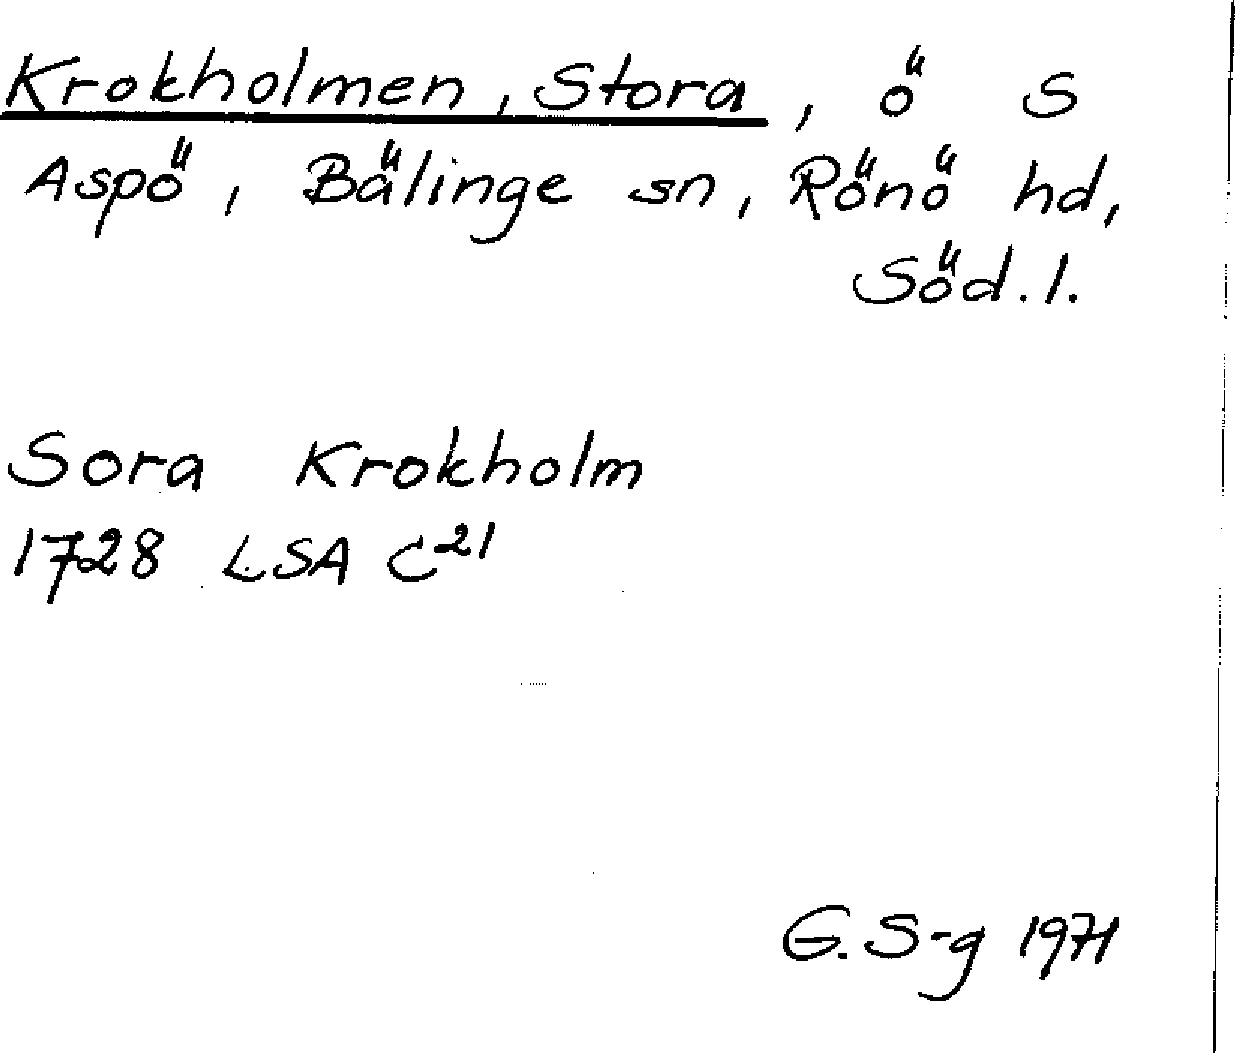 Krokholmen, Stora, ö S
Aspö, Bälinge sn, Rönö hd,
Söd. l.
Sora Krokholm
1728 LSA C²¹
G. S-g 1971